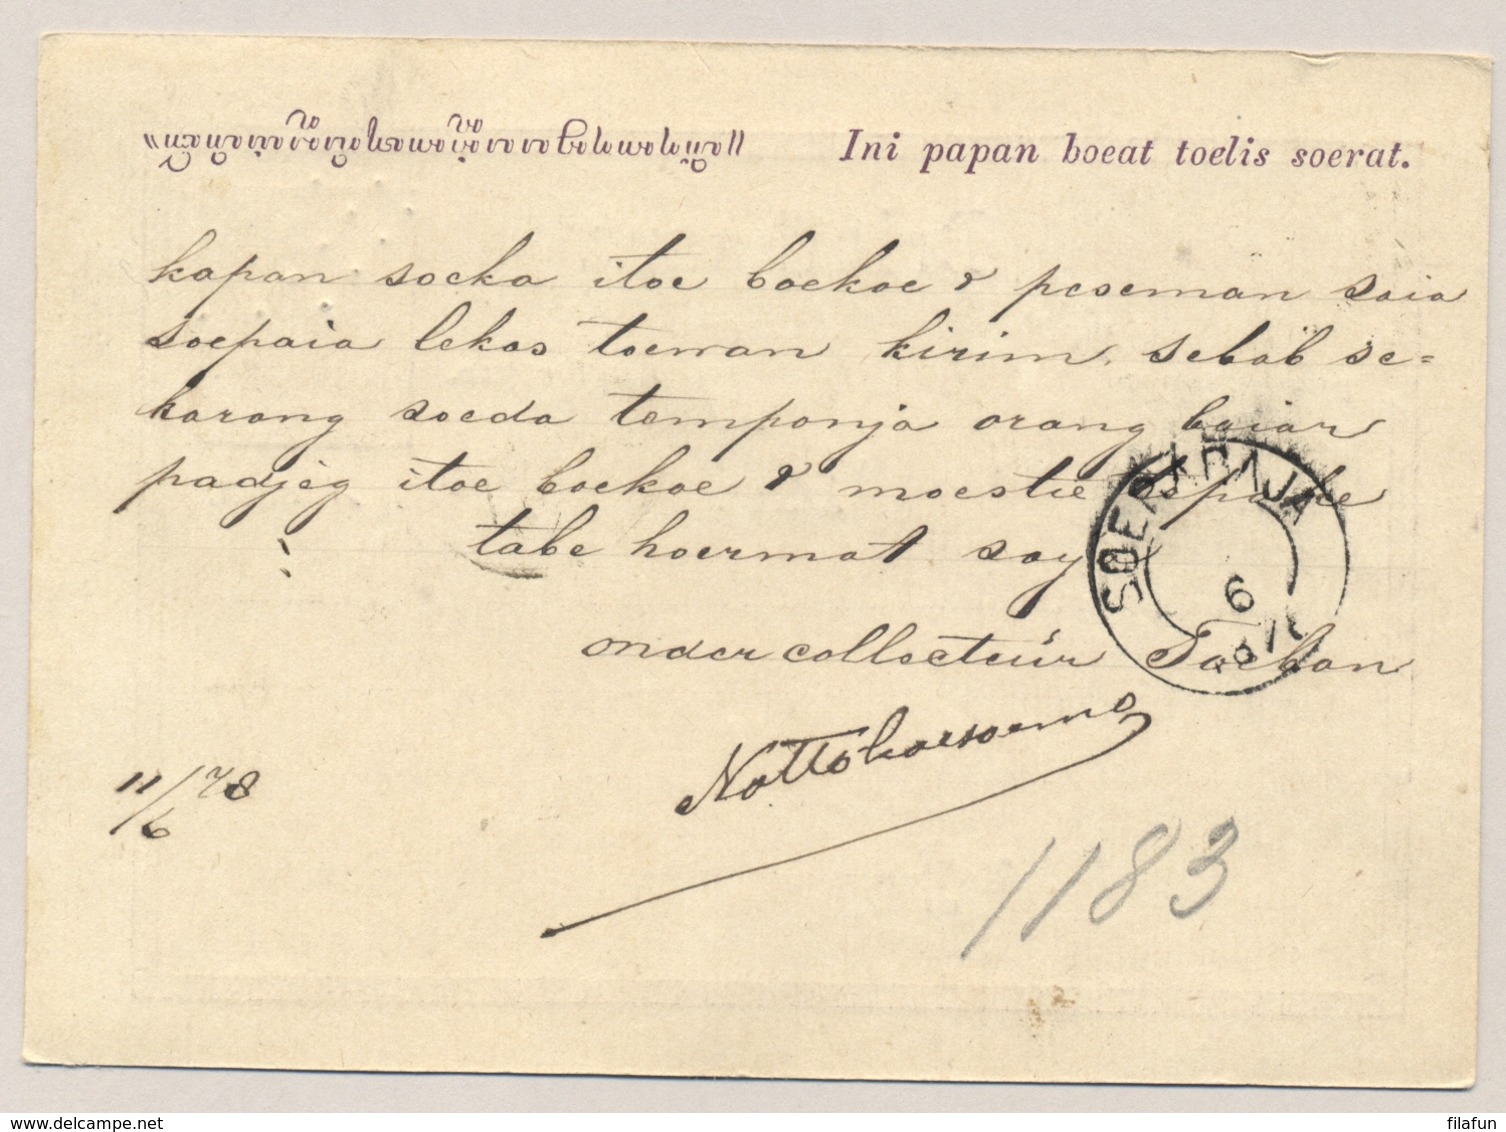 Ini papan boeat toelis soerat.
kapan soeka itoe boekoe² peseman saia
soepaia lekas toewan kirim, sebab se=
karang soeda temponja orang baiar
padjeg itoe boekoe² moestie
tabe hoermat say
onder collecteur Toeban
11/6 78
SOERABAJA
6
1183
www.delcampe.net
filafun